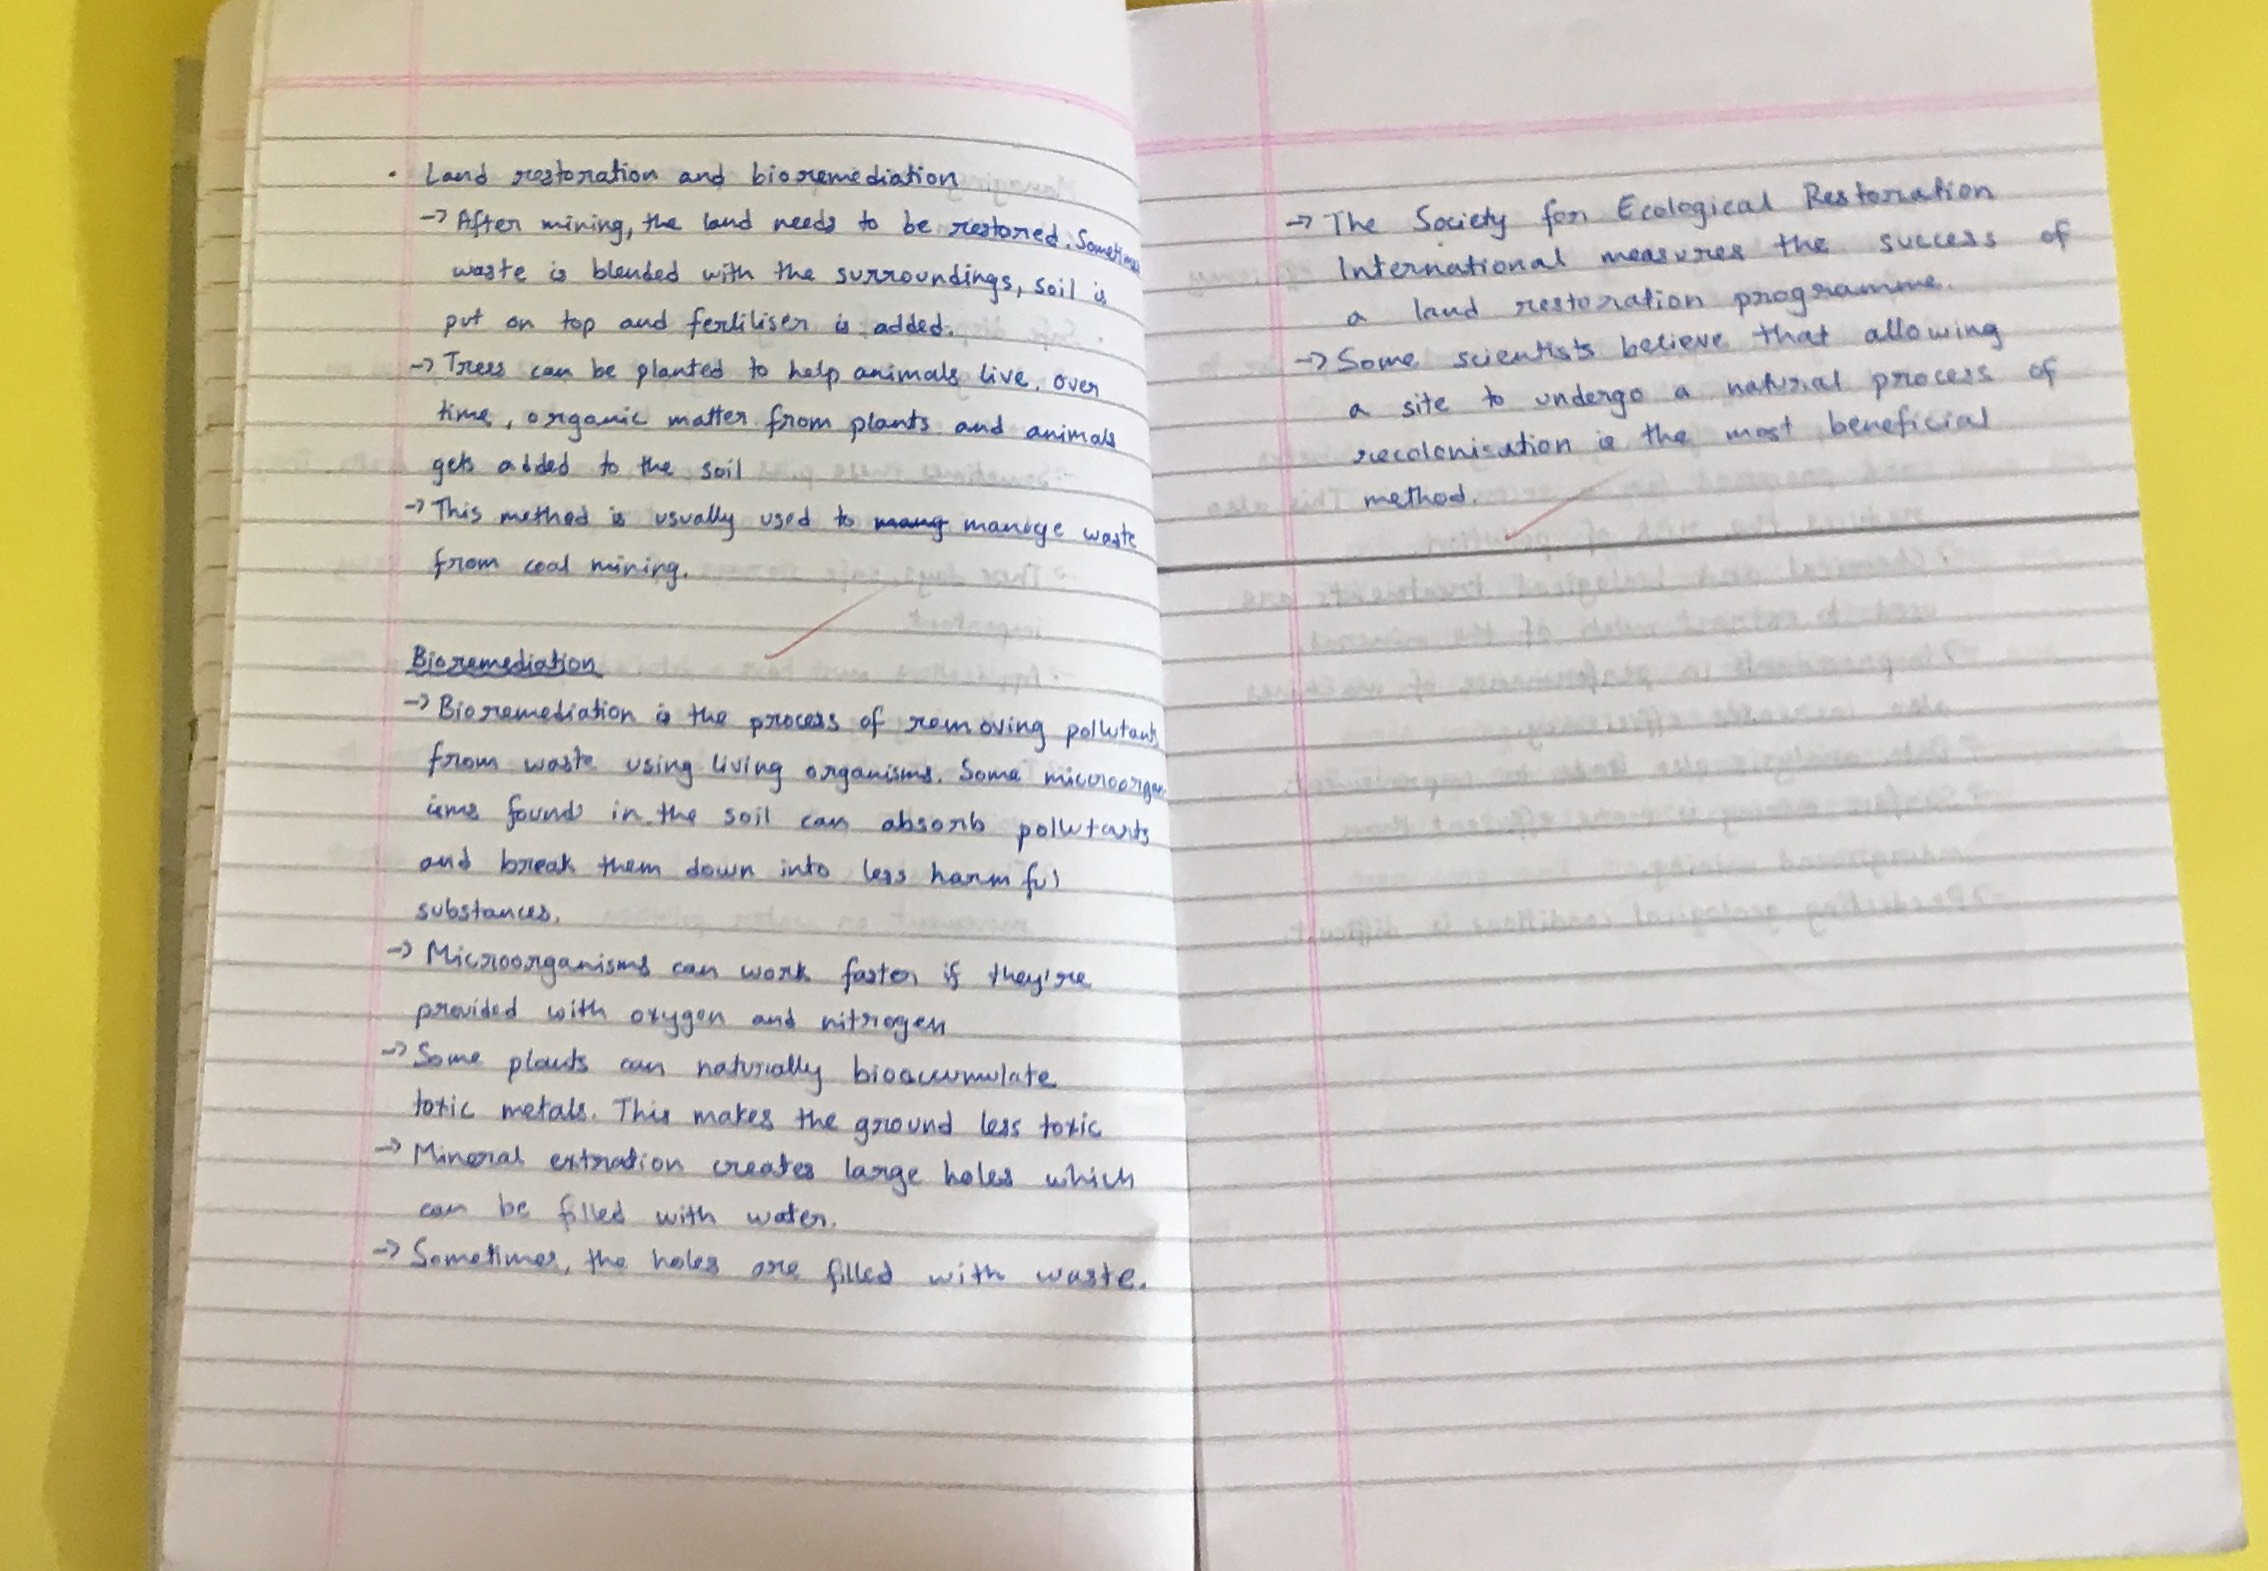 · Land restoration and bioremediation
→ After mining, the land needs to be restored. Sometimes
waste is blended with the surroundings, soil is
put on top and fertiliser is added.
→ Trees can be planted to help animals live. over
time, organic matter from plants and animals
gets added to the soil
→ This method is usually used to manage waste
from coal mining.
Bioremediation
→ Bioremediation is the process of removing pollutants
from waste using living organisms. Some microorgan
isms found in the soil can absorb pollutants
and break them down into less harmful
substances.
→ Microorganisms can work faster if they're
provided with oxygen and nitrogen
→ Some plants can naturally bioaccumulate
toxic metals. This makes the ground less toxic
→ Mineral extration creates large holes which
can be filled with water.
→ Sometimes, the holes are filled with waste.
→ The Society for Ecological Restoration
International measures the success of
a land restoration programme.
→ Some scientists believe that allowing
a site to undergo a natural process of
recolonisation is the most beneficial
method.